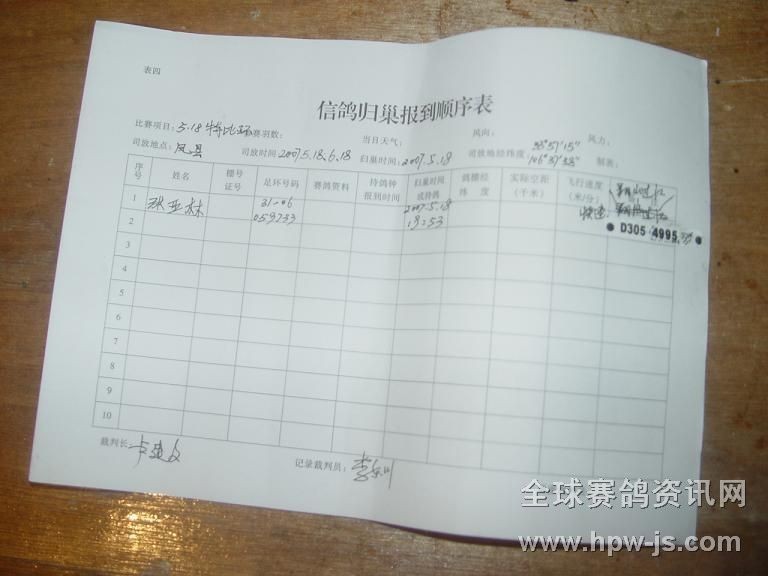 表四
信鸽归巢报到顺序表
比赛项目: 5.18特比环 赛羽数: 当日天气: 风向: 风力:
司放地点: 凤县 司放时间: 2007.5.18.6.18 归巢时间: 2007.5.18 司放地经纬度 33°57'15" 106°31'38" 制表:
序号 姓名 棚号证号 足环号码 赛鸽资料 持鸽钟报到时间 归巢时间或持鸽 鸽棚经纬度 实际空距(千米) 飞行速度(米/分)
1 张亚林 31-06 2007.5.18
2 059233 19:53
D305 4995
3
4
5
6
7
8
9
10
裁判长: 记录裁判员:
全球赛鸽资讯网
www.hpw-js.com